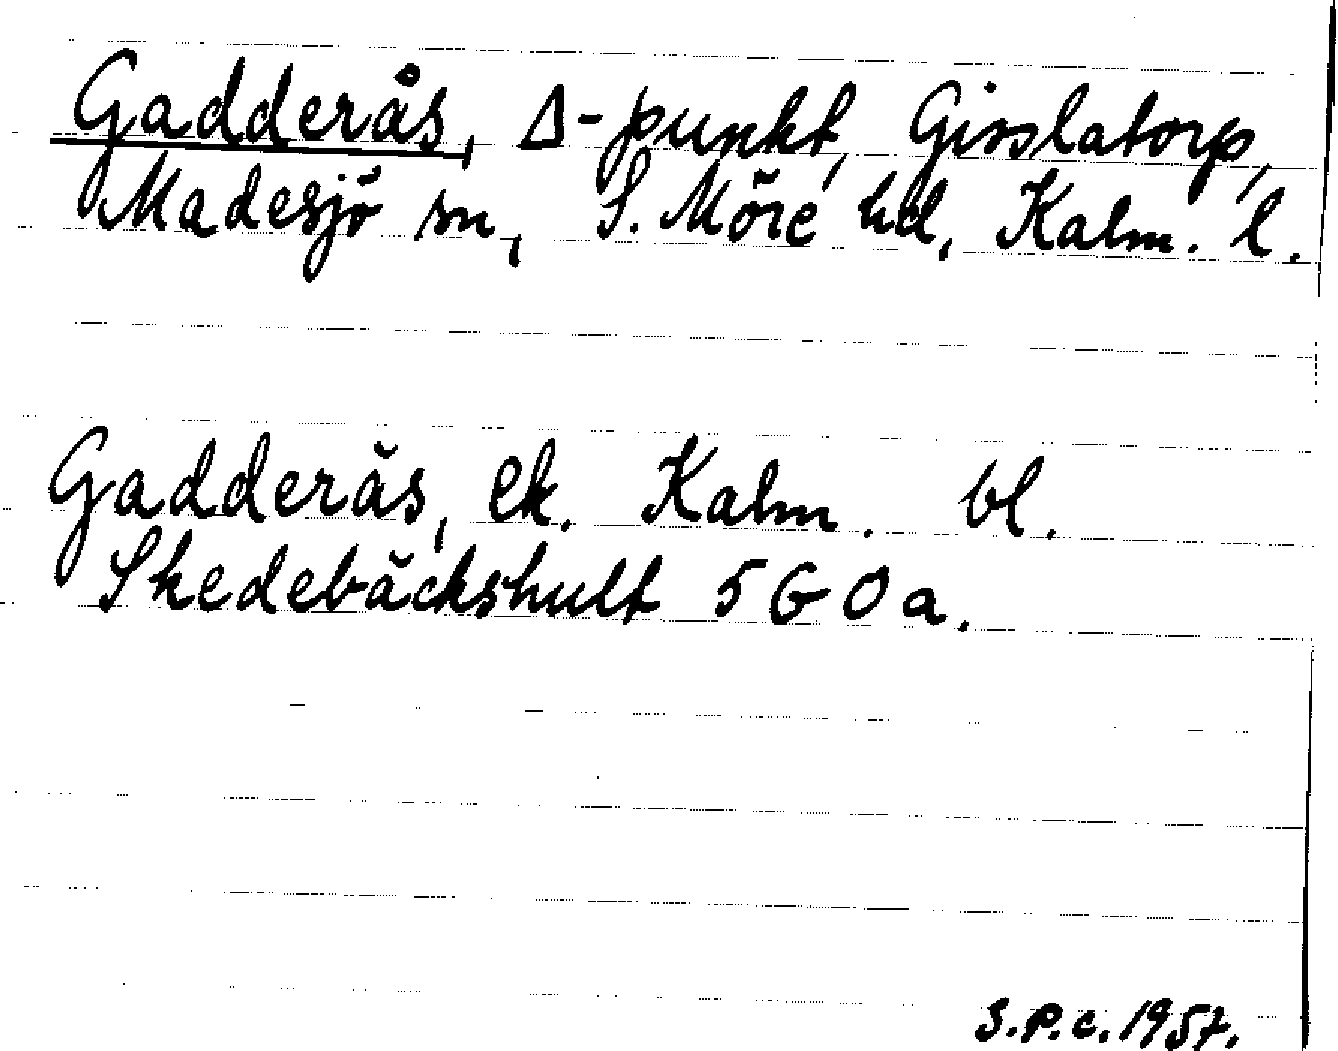 Gadderås, Δ-punkt, Gisslatorp,
Madesjö sn, S. Möre hd, Kalm. l.
Gadderås, ek. Kalm. bl.
Skedebäckshult 5G0a.
S.P.C. 1957.